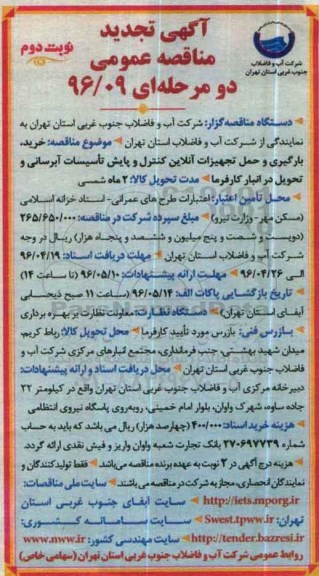 آگهی تجدید
مناقصه عمومی
دو مرحله‌ای ۹۶/۰۹
نوبت دوم
شرکت آب و فاضلاب
جنوب غربی استان تهران
دستگاه مناقصه‌گزار: شرکت آب و فاضلاب جنوب غربی استان تهران به
نمایندگی از شرکت آب و فاضلاب استان تهران موضوع مناقصه: خرید،
بارگیری و حمل تجهیزات آنلاین کنترل و پایش تأسیسات آبرسانی و
تحویل در انبار کارفرما مدت تحویل کالا: ۲ ماه شمسی
محل تامین اعتبار: اعتبارات طرح های عمرانی- اسناد خزانه اسلامی
(مسکن مهر- وزارت نیرو) مبلغ سپرده شرکت در مناقصه: ۲۶۵/۶۵۰/۰۰۰
(دویست و شصت و پنج میلیون و ششصد و پنجاه هزار) ریال در وجه
شرکت آب و فاضلاب استان تهران مهلت دریافت اسناد: ۹۶/۰۴/۱۹
الی ۹۶/۰۴/۲۶ مهلت ارائه پیشنهادات: ۹۶/۰۵/۱۰ (تا ساعت ۱۴)
تاریخ بازگشایی پاکات الف: ۹۶/۰۵/۱۴ (ساعت ۱۱ صبح ذیحسابی
آبفای استان تهران) دستگاه نظارت: معاونت نظارت بر بهره برداری
بازرس فنی: بازرس مورد تأیید کارفرما محل تحویل کالا: رباط کریم،
میدان شهید بهشتی، جنب فرمانداری، مجتمع انبارهای مرکزی شرکت آب و
فاضلاب جنوب غربی استان تهران محل دریافت اسناد و ارائه پیشنهادات:
دبیرخانه مرکزی آب و فاضلاب جنوب غربی استان تهران واقع در کیلومتر ۲۲
جاده ساوه، شهرک واوان، بلوار امام خمینی، روبه‌روی پاسگاه نیروی انتظامی
هزینه خرید اسناد: ۴۰۰/۰۰۰ (چهارصد هزار) ریال می باشد که باید به حساب
شماره ۲۷۰۶۹۷۷۳۹ بانک تجارت شعبه واوان واریز و فیش نقدی ارائه گردد.
هزینه درج آگهی در ۲ نوبت به عهده برنده مناقصه می‌باشد. فقط تولیدکنندگان و
نمایندگان انحصاری، مجاز به شرکت در مناقصه می‌باشند. سایت ملی مناقصات:
http://iets.mporg.ir سایت آبفای جنوب غربی استان
تهران: Swest.tpww.ir سایت سامانه کشوری:
http://tender.bazresi.ir سایت مهندسی کشور: www.nww.ir
روابط عمومی شرکت آب و فاضلاب جنوب غربی استان تهران (سهامی خاص)